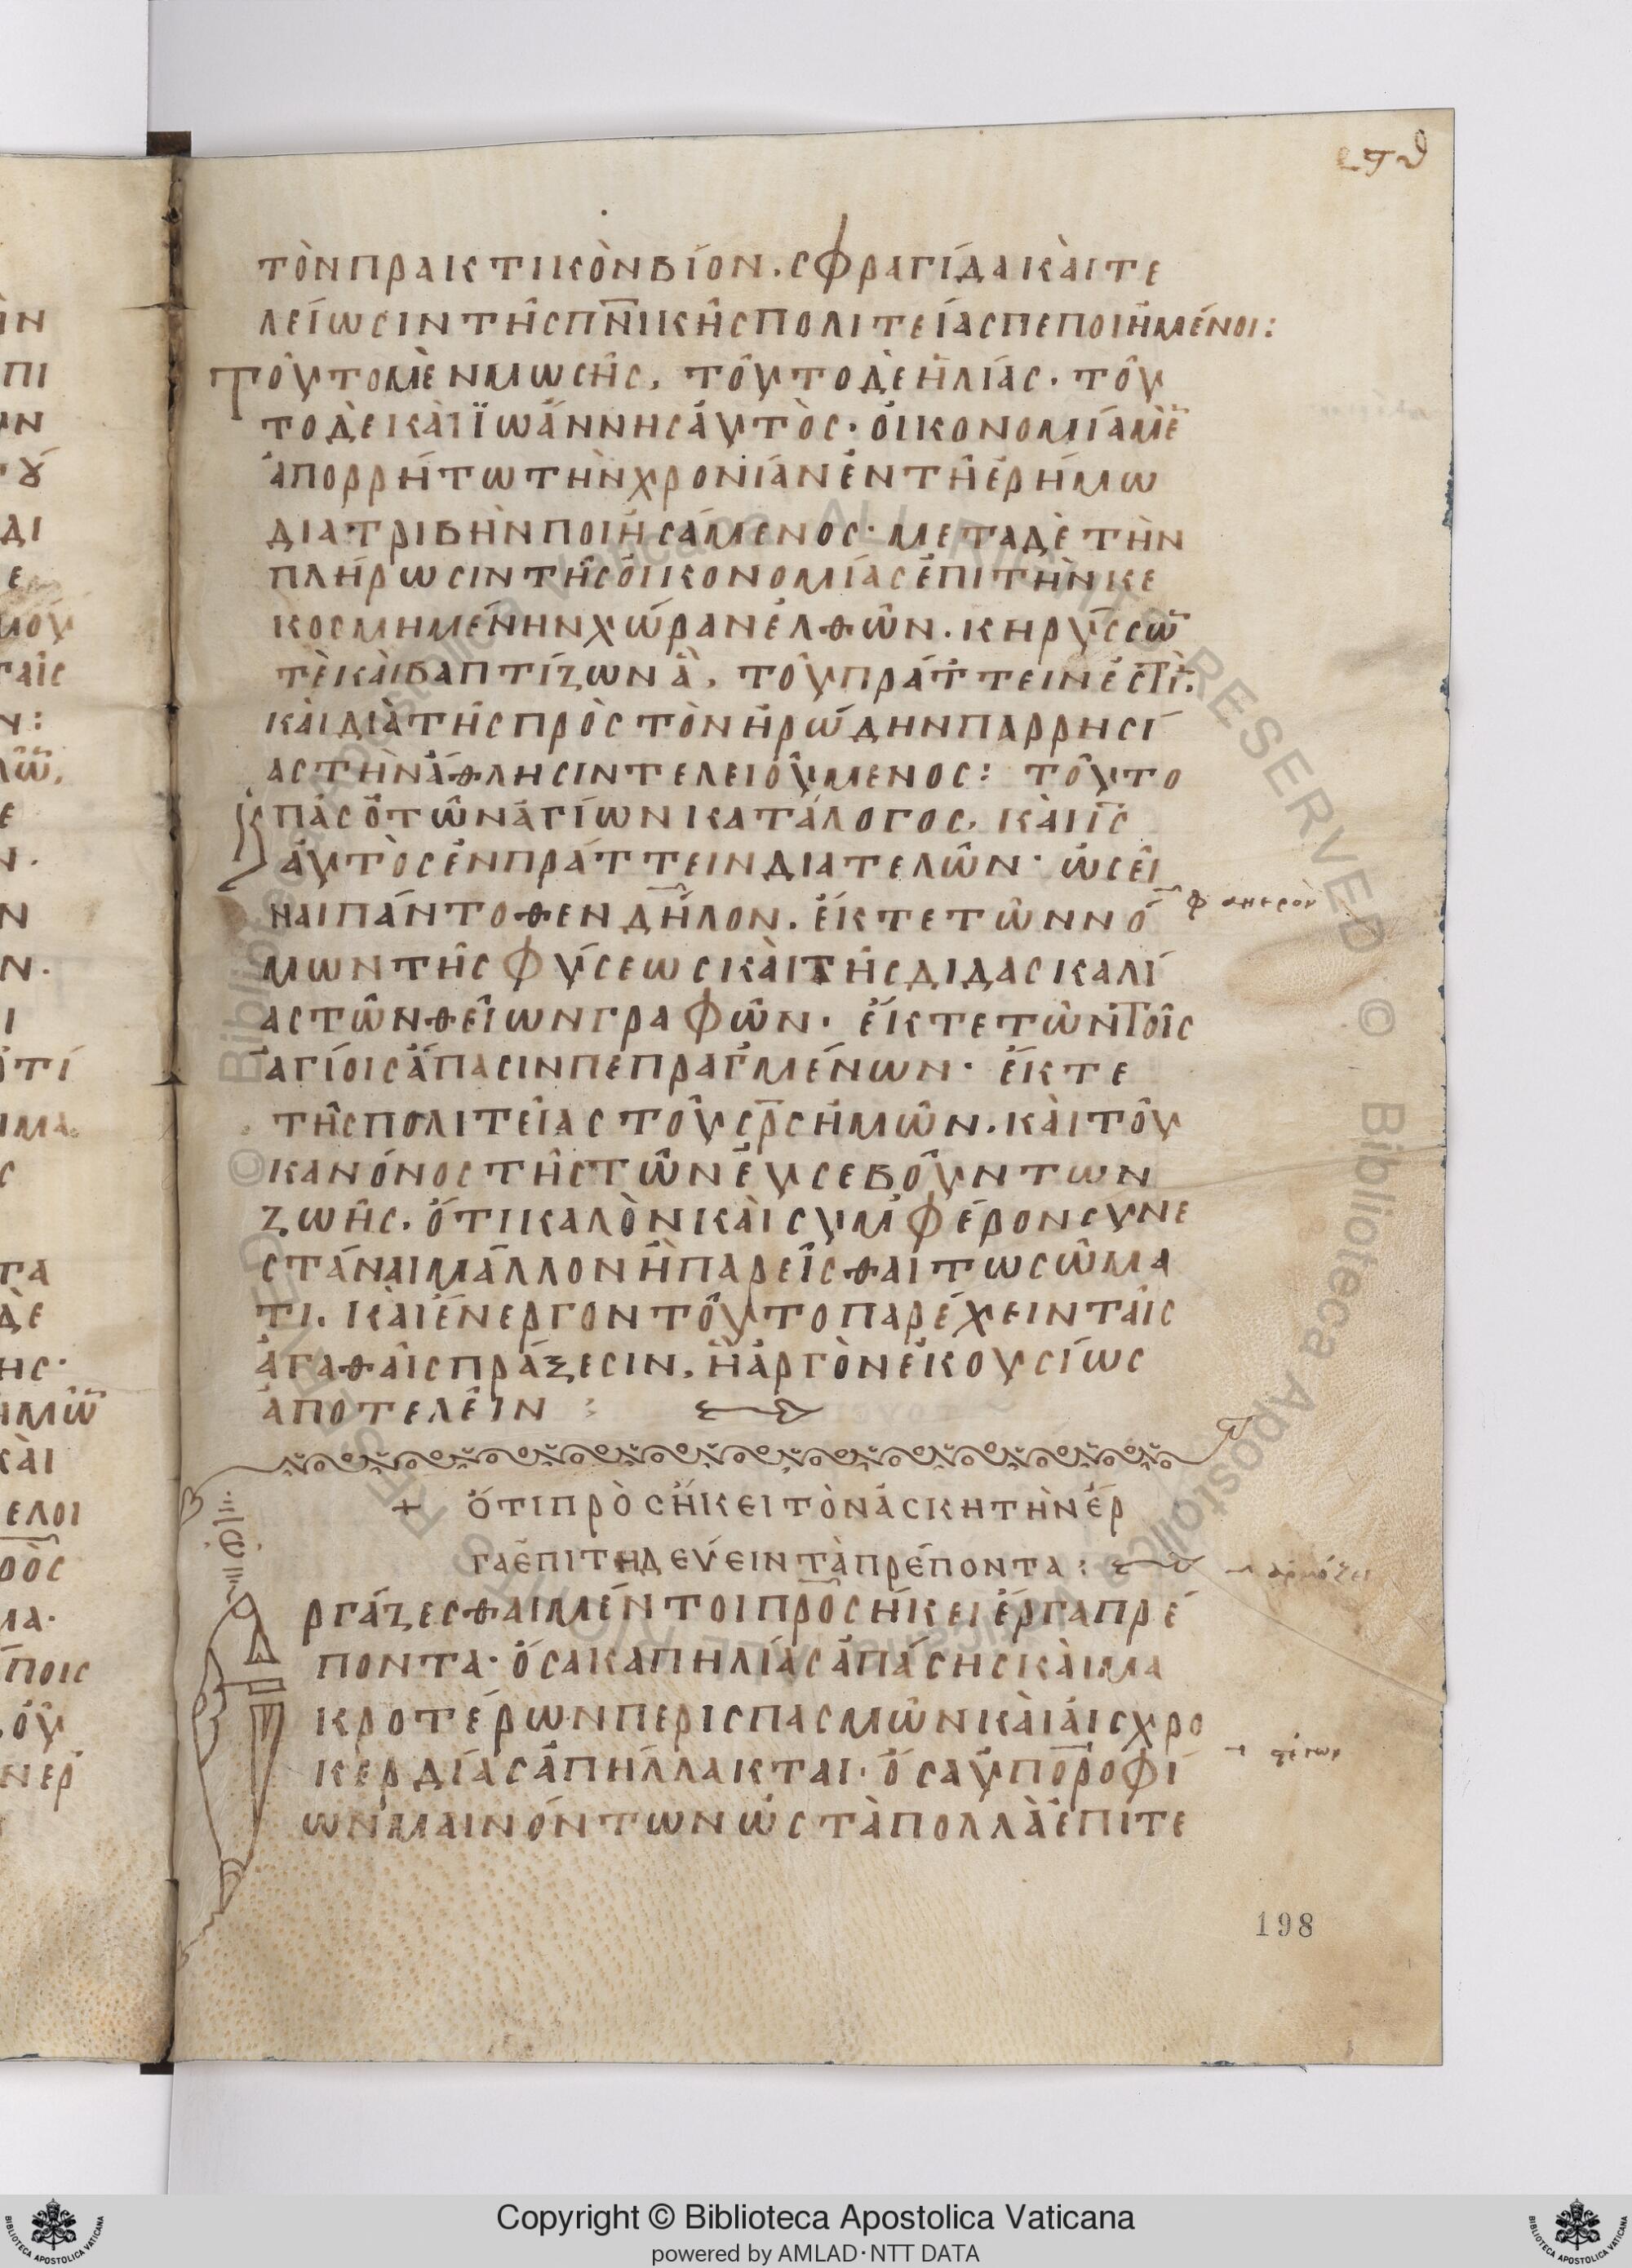 τὸν πρακτικὸν βίον. σφραγίδα καὶ τε
λείωσιν τῆς πν̅ικῆς πολιτείας πεποιημένοι:
Τοῦτο μὲν μωσῆς, τοῦτο δὲ ἠλίας. τοῦ
το δὲ καὶ ϊωάννης αὐτὸς· οἰκονομία μὲ̅
ἀπορρήτω τὴν χρονίαν ἐν τῆ ἐρήμω
διατριβὴν ποιησάμενος· μετα δὲ τὴν
πλήρωσιν τῆς οἰκονομίας ἐπι τὴν κε
κοσμημένην χώραν ἐλθῶν. κηρύσσω̅
τὲ καὶ βαπτίζων ἃ, τοῦ πράττειν ἐστὶ.
καὶ διὰ τῆς πρὸς τὸν ἡρώδην παρρησί
ας τὴν ἄθλησιν τελειούμενος: τοῦτο
πᾶς ὁ τῶν ἁγίων κατάλογος, καὶ ι̅ς
αὐτὸς ἐν πράττειν διατελῶν· ὡς εἶ
ναι πάντοθεν δῆλον. ἔκ τε τῶν νό
μων τῆς φύσεως καὶ τῆς διδασκαλί
ας τῶν θείων γραφῶν. ἔκ τε τῶν τοῖς
ἁγίοις ἅπασιν πεπραγμένων· ἔκ τε
τῆς πολιτείας τοῦ σ̅ρ̅ς ἡμῶν. καὶ τοῦ
κανόνος τῆς τῶν εὐσεβούντων
ζωῆς. ὅτι καλὸν καὶ συμφέρον συνε
στάναι μάλλον ἢ παρεῖσθαι τω σῶμα
τι. καὶ ἐνεργον τοῦτο παρέχειν ταῖς
ἀγαθαῖς πράξεσιν, ἢ ἀργὸν ἑκουσίως
ἀποτελεῖν :
+ Ὅτι πρὸσήκει τὸν ἀσκητὴν ἔρ
γα ἐπιτηδεύειν τὰ πρέποντα :
Ἐργάζεσθαι μέντοι προσήκει ἔργα πρέ
ποντα· ὅσα καπηλίας ἁπάσης καὶ μα
κροτέρων περισπασμῶν καὶ αἰσχρο
κερδίας ἀπήλλακται. ὅσα ὑποροφί
ων μαινόντων ὡς τὰ πολλὰ ἐπιτε
198
Copyright © Biblioteca Apostolica Vaticana
powered by AMLAD·NTT DATA